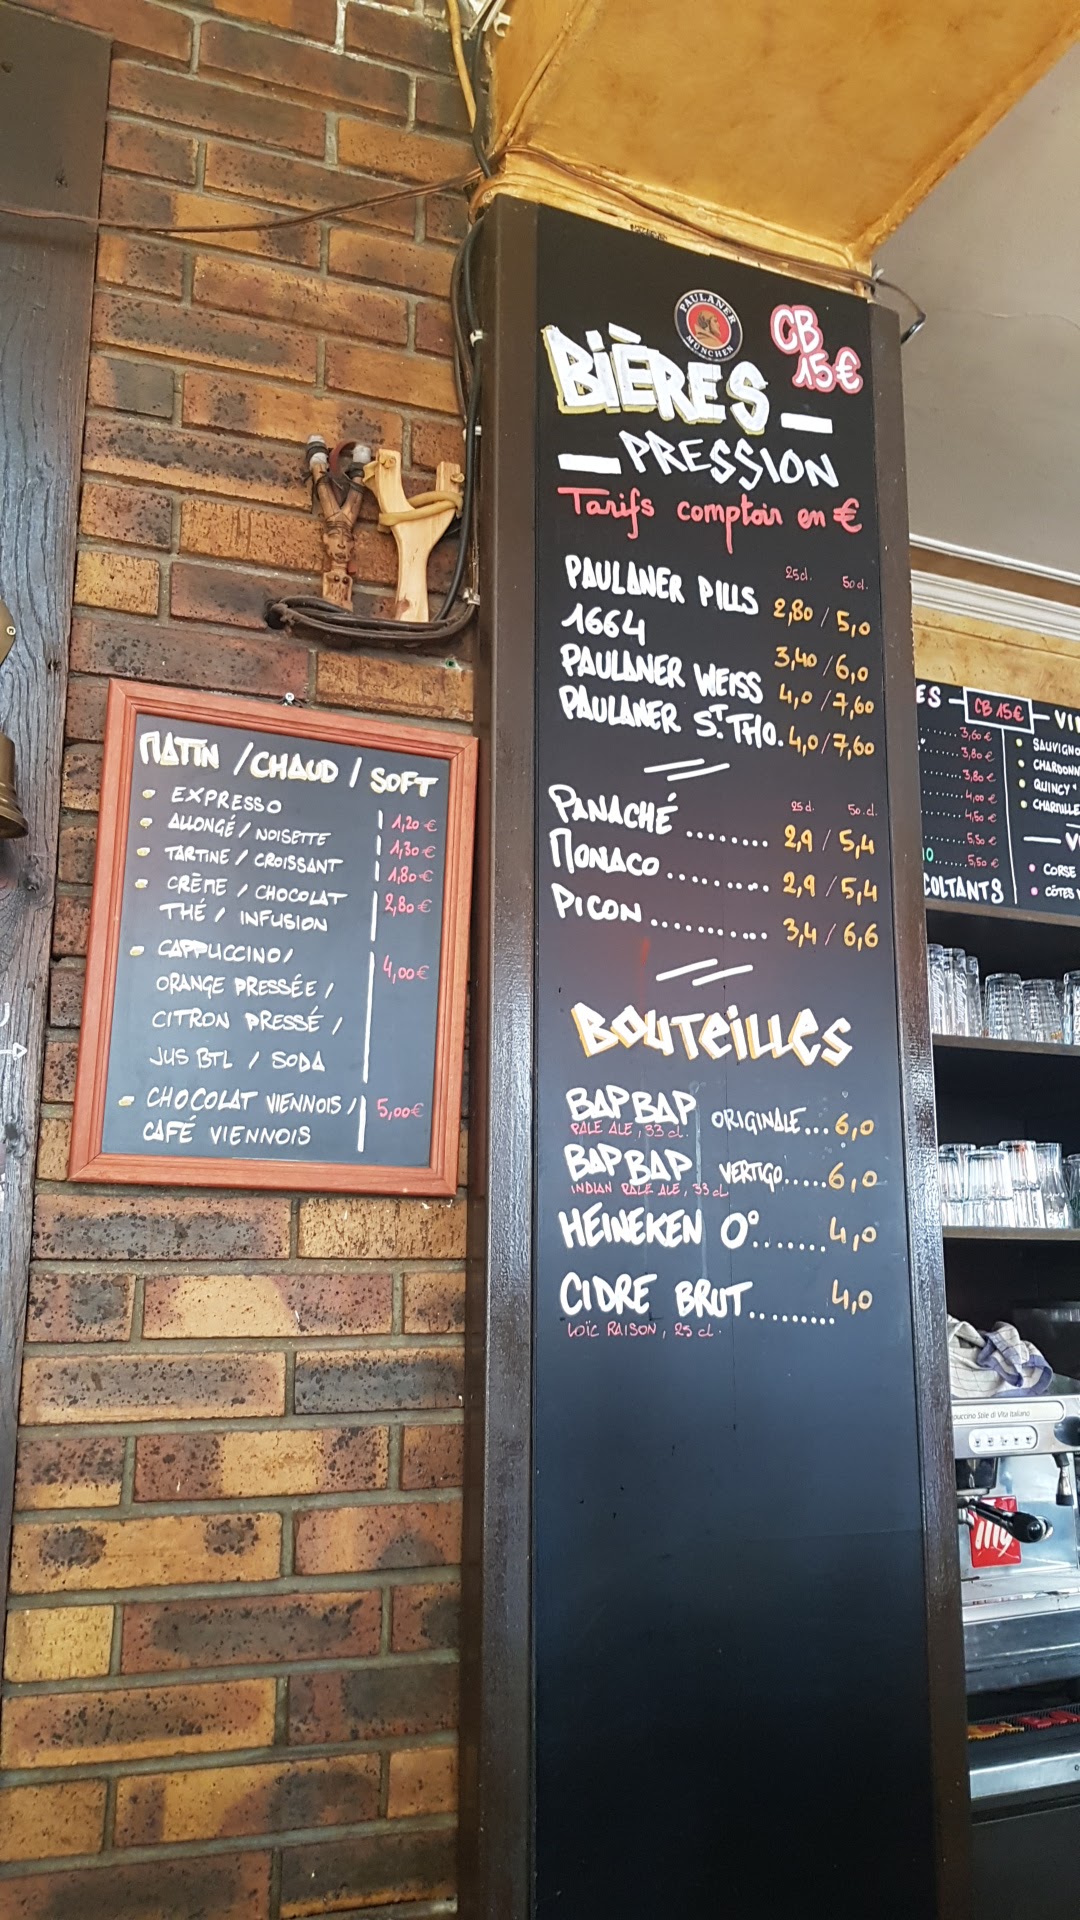 MATIN / CHAUD / SOFT
EXPRESSO 1,20 €
ALLONGÉ / NOISETTE 1,30 €
TARTINE / CROISSANT 1,80 €
CRÈME / CHOCOLAT 2,80 €
THÉ / INFUSION
CAPPUCCINO / 4,00 €
ORANGE PRESSÉE /
CITRON PRESSÉ /
JUS BTL / SODA
CHOCOLAT VIENNOIS / 5,00 €
CAFÉ VIENNOIS
PAULANER
MÜNCHEN
CB
15 €
BIÈRES
PRESSION
Tarifs comptoir en €
25 cl. 50 cl.
PAULANER PILLS 2,80 / 5,0
1664 3,40 / 6,0
PAULANER WEISS 4,0 / 7,60
PAULANER ST. THO. 4,0 / 7,60
25 cl. 50 cl.
PANACHÉ ........ 2,9 / 5,4
MONACO .......... 2,9 / 5,4
PICON ........... 3,4 / 6,6
BOUTEILLES
BAPBAP ORIGINALE... 6,0
PALE ALE, 33 cl.
BAPBAP VERTIGO..... 6,0
INDIAN PALE ALE, 33 cL
HEINEKEN 0° ....... 4,0
CIDRE BRUT ......... 4,0
LOÏC RAISON, 25 cl.
ES — CB 15€ — VI
3,60 €
3,80 €
3,80 €
4,00 €
4,50 €
5,50 €
5,50 €
COLTANTS
SAUVIGNO
CHARDONN
QUINCY
— V
CORSE
CÔTES
puccino Stile di Vita Italiano
illy